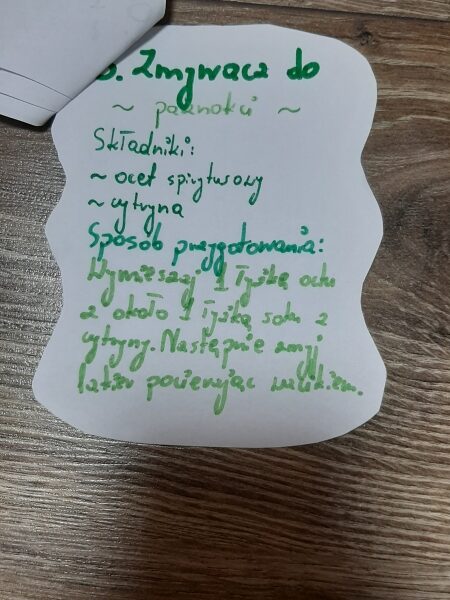 . Zmywacz do
~ paznokci ~
Składniki:
~ ocet spirytusowy
~ cytryna
Sposób przygotowania:
Wymieszaj 1 łyżkę octu
z około 1 łyżką soku z
cytryny. Następnie zmyj
lakier pocierając wacikiem.